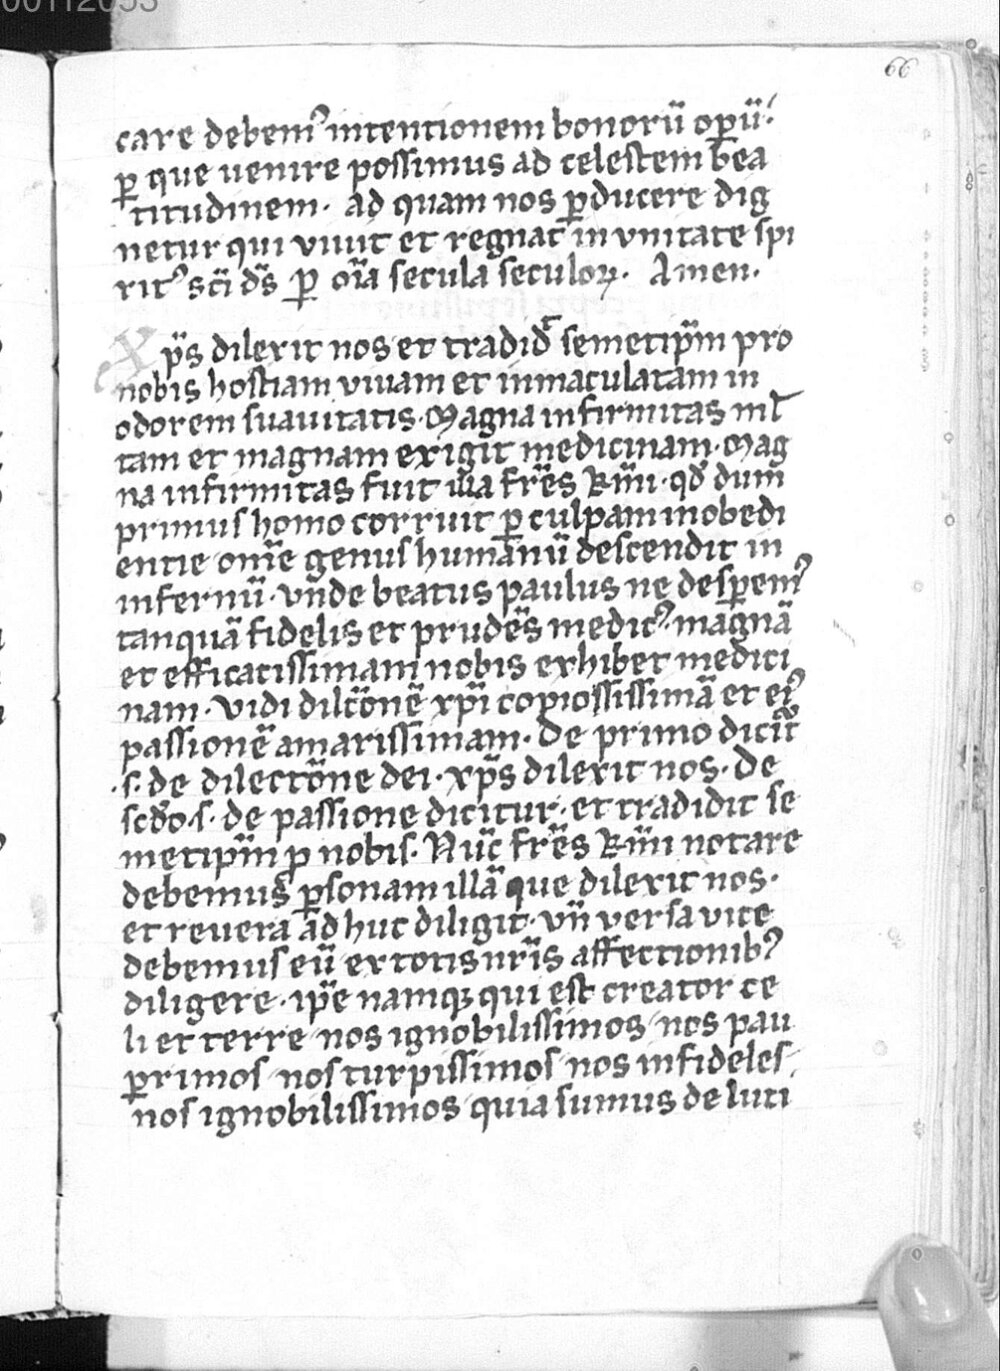 00112053
66
care debem᾽ intentionem bonorū oꝑū·
ꝑ que uenire possimus ad celestem bea
titudinem· ad quam nos ꝑducere dig
netur qui viuit et regnat in vnitate spi
rit᾽ sc̄i ds̄ ꝑ oīa secula seculoꝝ· Amen·
Xp̄s dilexit nos et tradid᷑ semetip̄m pro
nobis hostiam viuam et inmaculatam in
odorem suauitatis· Magna infirmitas
tam et magnam exigit medicinam· Mag
na infirmitas fuit frēs kmi· qd̄ dum
primus homo corruit ꝑ culpam inobedi
entie om̄e genus humanū descendit in
infernū· vnde beatus paulus ne desꝑem᾽
tanquā fidelis et prudēs medic᾽· magnā
et efficacissimam nobis exhibet medici
nam· Vidi dilc̄onē xp̄i copiossissimā et ei᾽
passionē amarissimam· De primo dicit᷑
·s· de dilectōne dei· xp̄s dilexit nos· De
scd̄o ·s· de passione dicitur· et tradidit se
metip̄m p nobis· Nūc frēs kmi notare
debemus ꝑsonam illā que dilexit nos·
et reuera ad huc diligit· vn̄ versa vice
debemus eū ex totis nr̄is affectionib᾽
diligere· ip̄e namqꝫ qui est creator ce
li et terre nos ignobilissimos nos pau
ꝑrimos nos turpissimos nos infideles
nos ignobilissimos quia sumus de luti